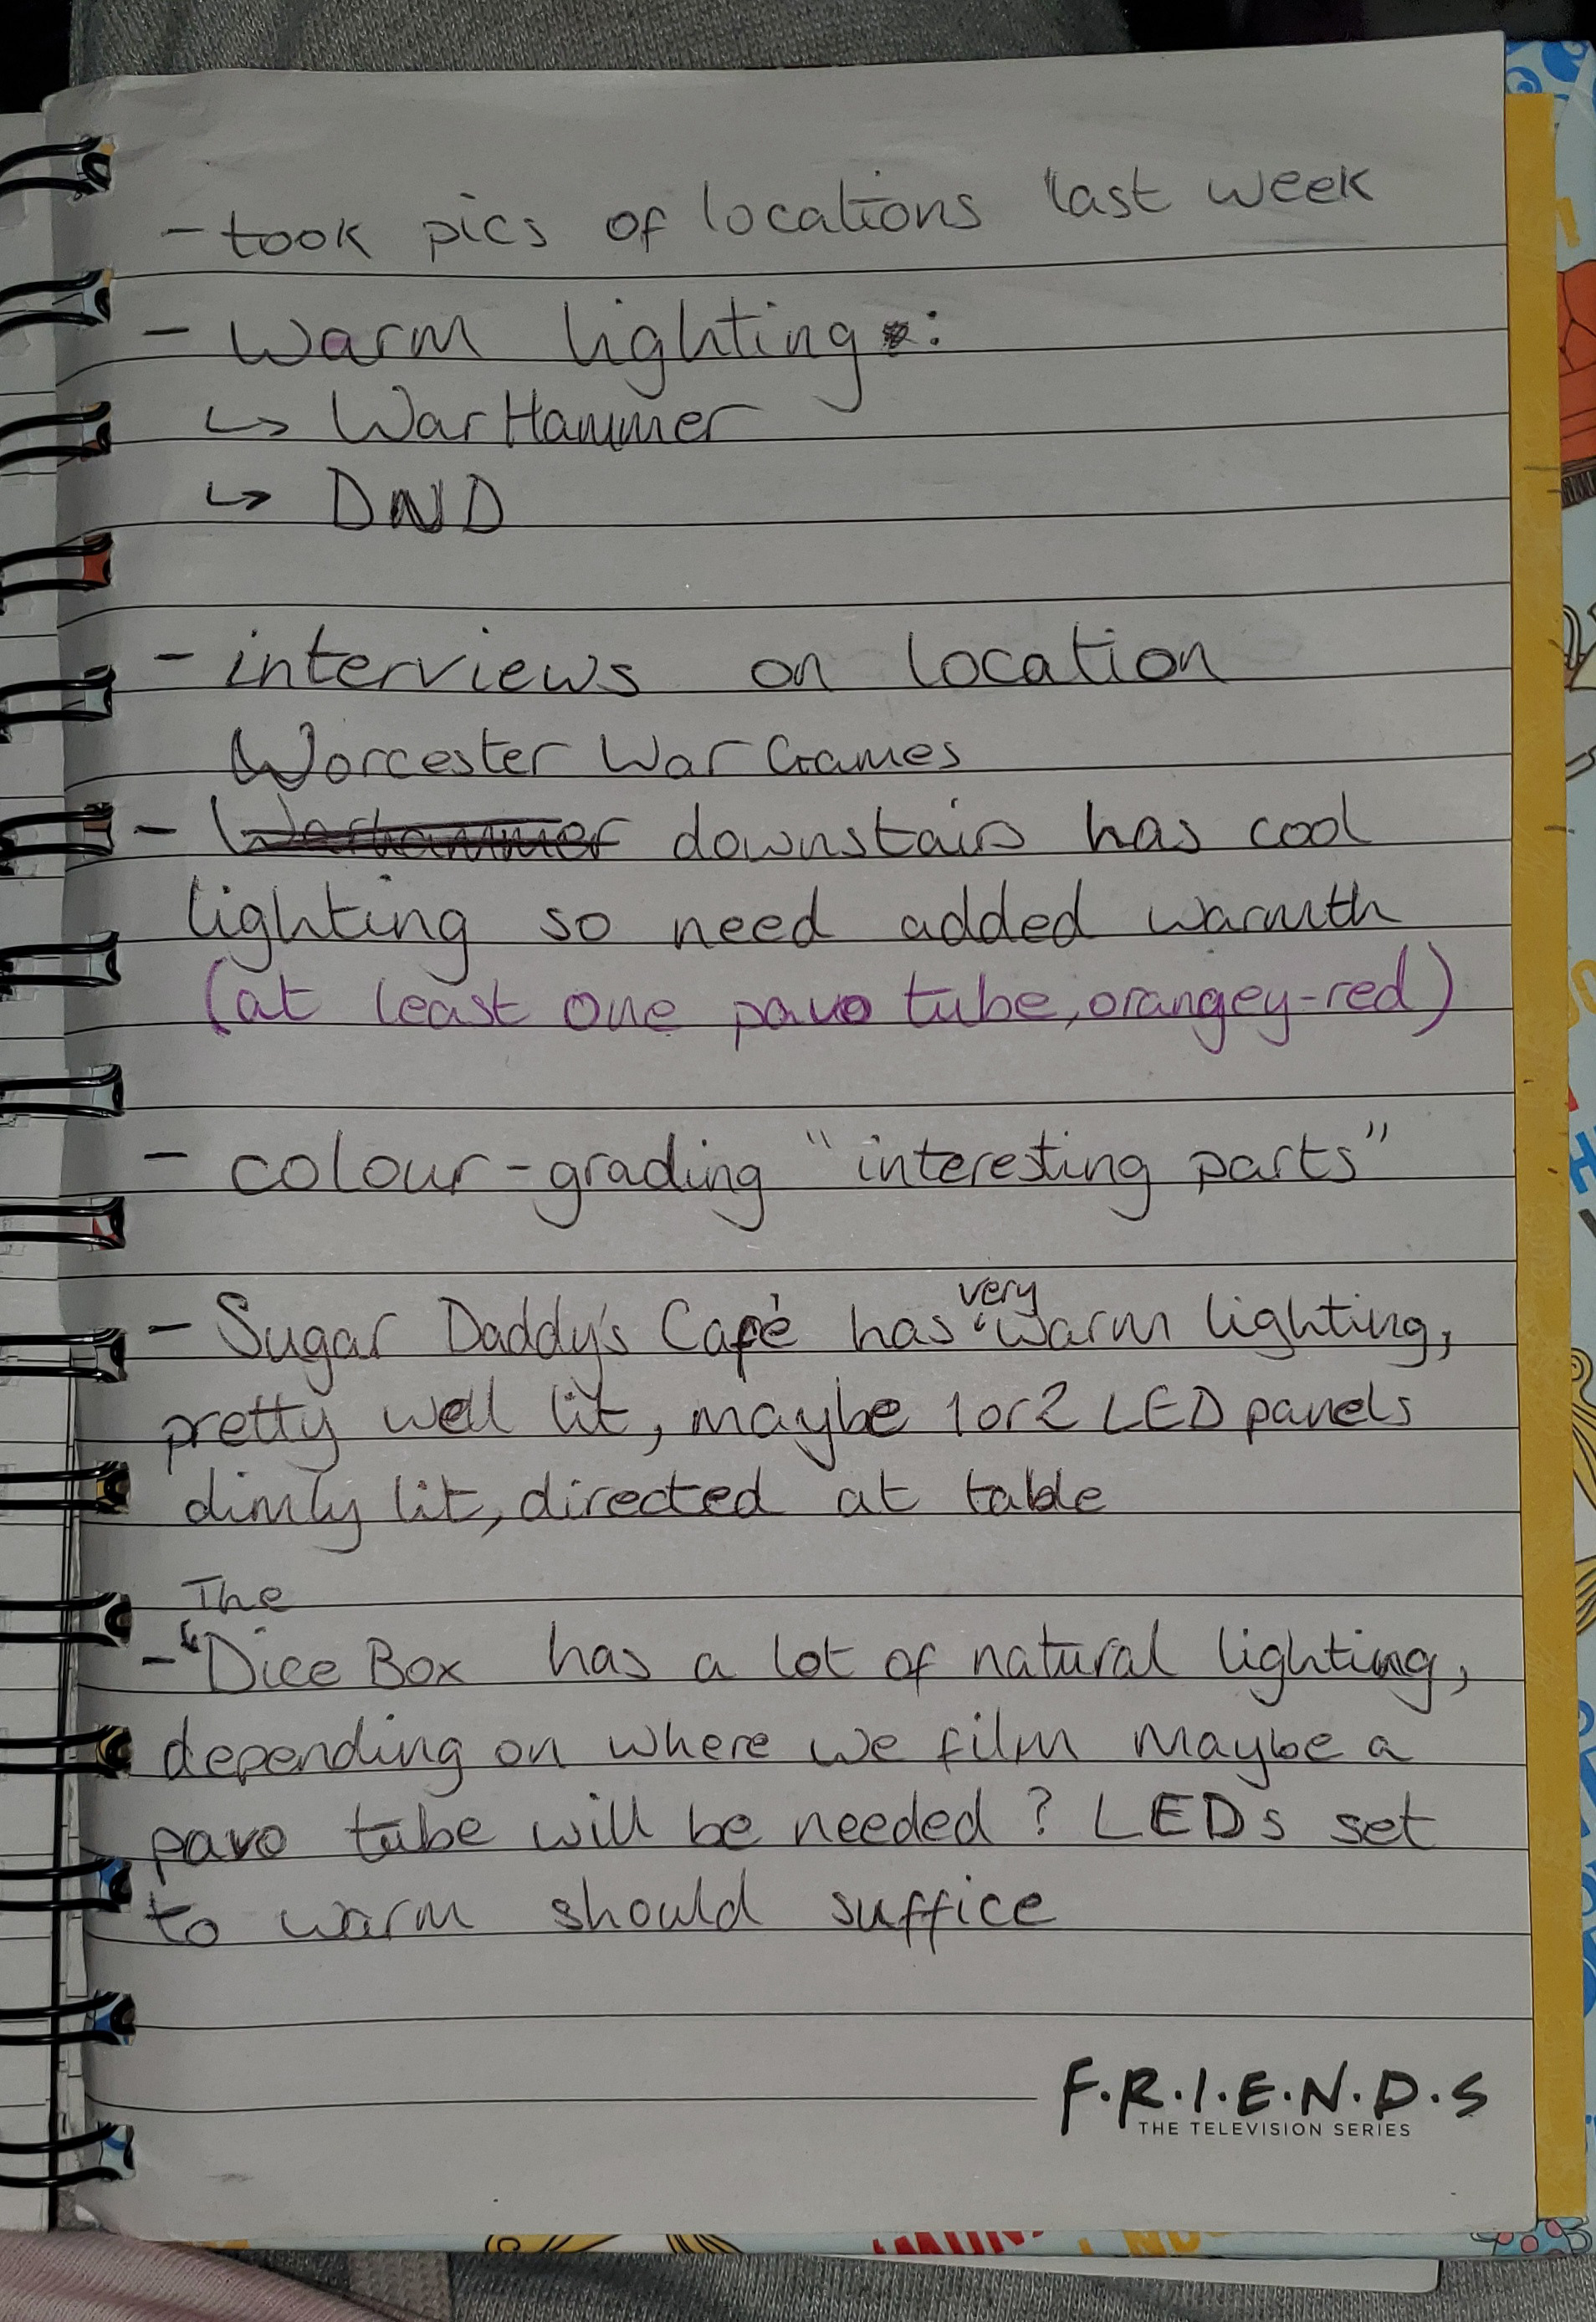 - took pics of locations last week
- warm lighting :
↳ WarHammer
↳ DND
- interviews on location
Worcester War Games
- Warhammer downstairs has cool
lighting so need added warmth
(at least one pavo tube, orangey-red)
- colour-grading "interesting parts"
very
- Sugar Daddy's Café has warm lighting,
pretty well lit, maybe 1 or 2 LED panels
dimly lit, directed at table
The
- Dice Box has a lot of natural lighting,
depending on where we film maybe a
pavo tube will be needed? LEDs set
to warm should suffice
F·R·I·E·N·D·S
THE TELEVISION SERIES